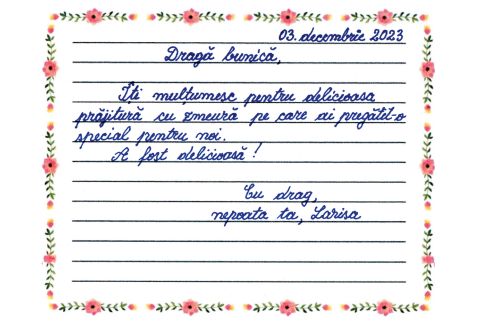 03. decembrie 2023
Dragă bunică,
Îți mulțumesc pentru delicioasa
prăjitură cu zmeură pe care ai pregătit-o
special pentru noi.
A fost delicioasă!
Cu drag,
nepoata ta, Larisa